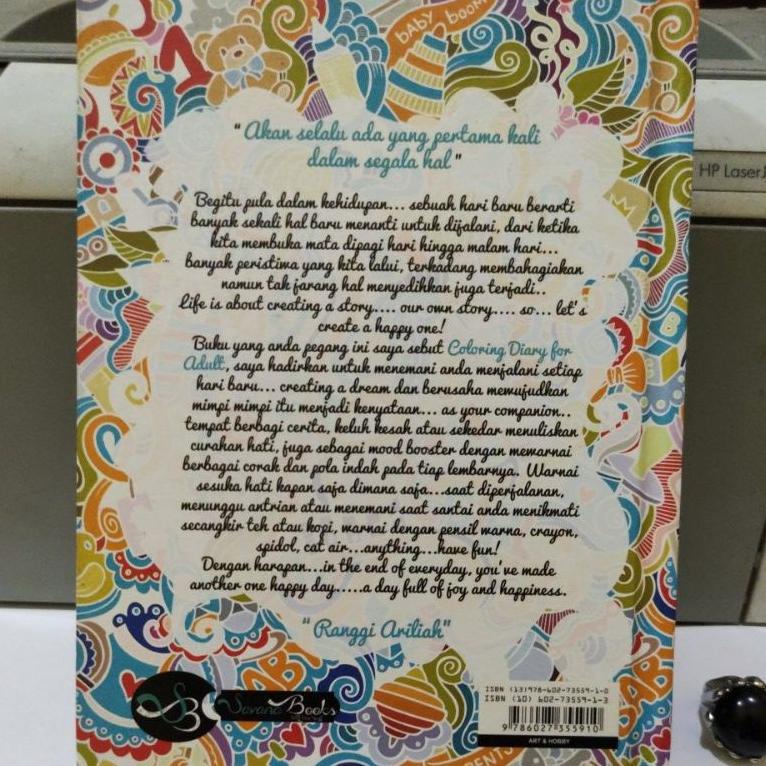 BABY BOOM
HP LaserJ
" Akan selalu ada yang pertama kali
dalam segala hal "
Begitu pula dalam kehidupan... sebuah hari baru berarti
banyak sekali hal baru menanti untuk dijalani, dari ketika
kita membuka mata dipagi hari hingga malam hari...
banyak peristiwa yang kita lalui, terkadang membahagiakan
namun tak jarang hal menyedihkan juga terjadi..
Life is about creating a story.... our own story.... so... let's
create a happy one!
Buku yang anda pegang ini saya sebut Coloring Diary for
Adult, saya hadirkan untuk menemani anda menjalani setiap
hari baru... creating a dream dan berusaha mewujudkan
mimpi mimpi itu menjadi kenyataan... as your companion..
tempat berbagi cerita, keluh kesah atau sekedar menuliskan
curahan hati, juga sebagai mood booster dengan mewarnai
berbagai corak dan pola indah pada tiap lembarnya. Warnai
sesuka hati kapan saja dimana saja...saat diperjalanan,
menunggu antrian atau menemani saat santai anda menikmati
secangkir teh atau kopi, warnai dengan pensil warna, crayon,
spidol, cat air...anything...have fun!
Dengan harapan...in the end of everyday, you've made
another one happy day.....a day full of joy and happiness.
" Ranggi Ariliah"
Savana Books
ISBN (13)978-602-73559-1-0
ISBN (10) 602-73559-1-3
9 786027 355910
ART & HOBBY